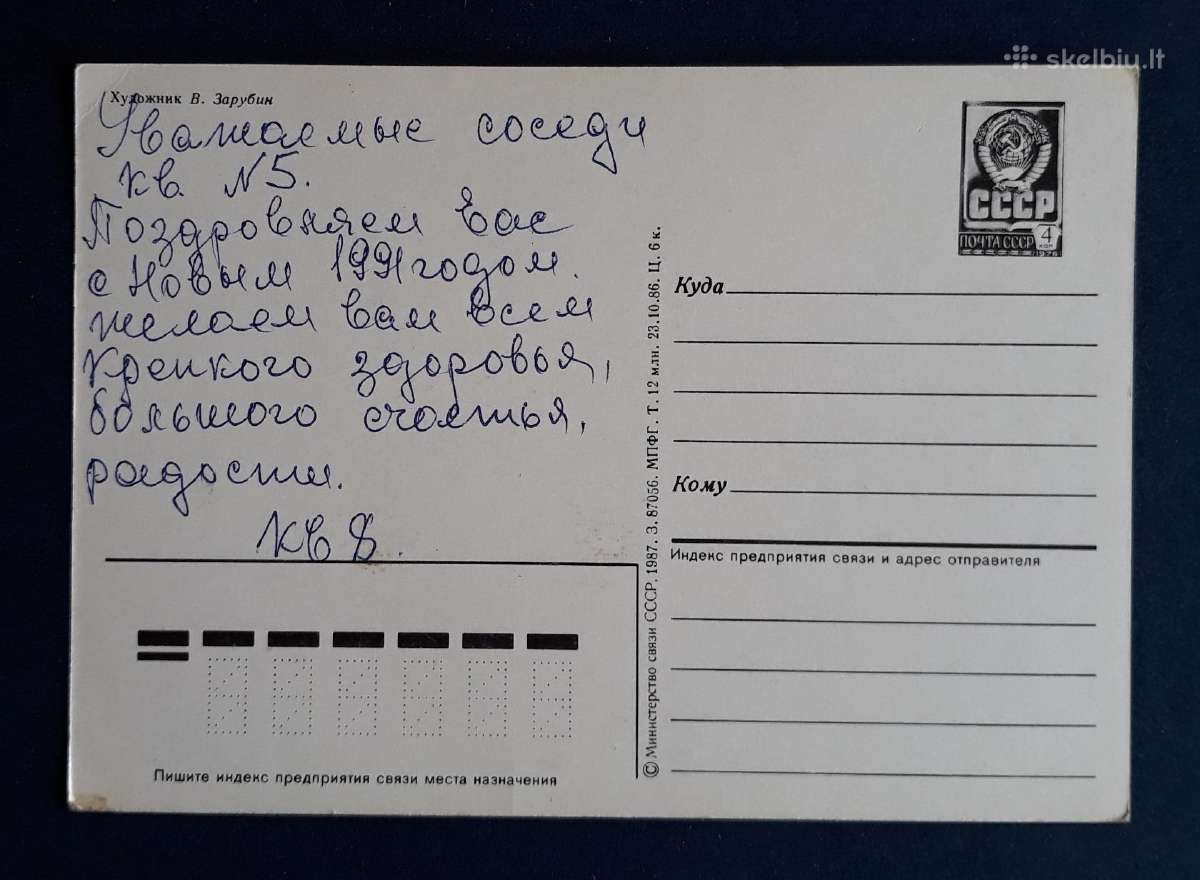 skelbiu.lt
Художник В. Зарубин
Уважаемые соседи
кв. №5.
Поздровляем вас
с Новым 1991 годом.
желаем вам всем
крепкого здоровья,
большого счастья,
радости.
кв 8.
СССР
ПОЧТА СССР
4
КОП
1976
Куда
Кому
Индекс предприятия связи и адрес отправителя
© Министерство связи СССР, 1987. З. 87056. МПФГ. Т. 12 млн. 23.10.86. Ц. 6 к.
Пишите индекс предприятия связи места назначения